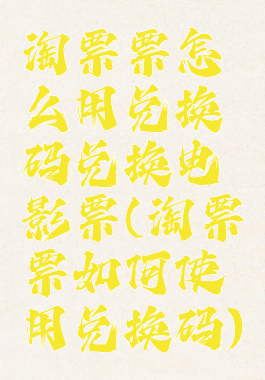 淘票票怎
么用兑换
码兑换电
影票(淘票
票如何使
用兑换码)